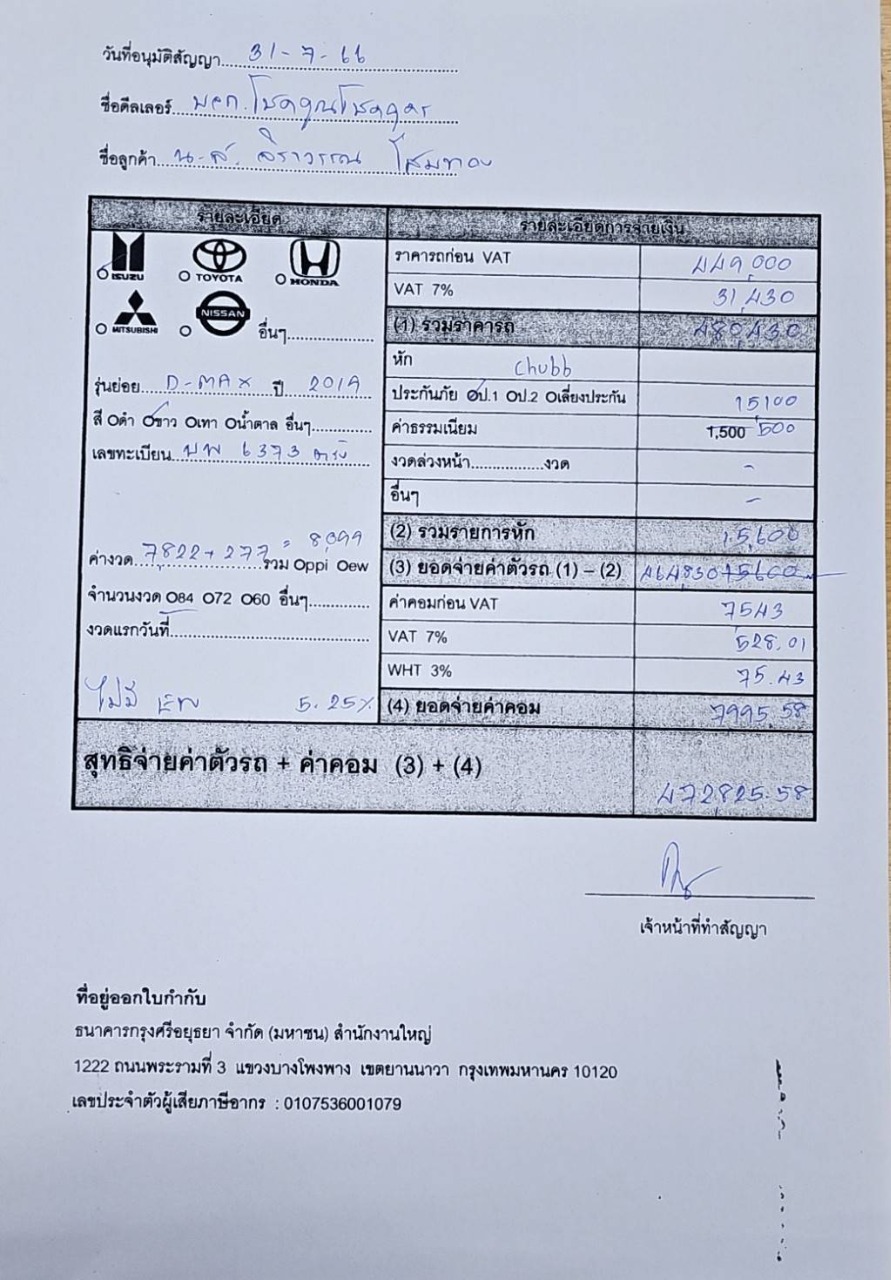 วันที่อนุมัติสัญญา 31-7-66
ชื่อดีลเลอร์ หจก.โชคคูณโชคถาวร
ชื่อลูกค้า น.ส. สิราวรรณ โสมทอง
รายละเอียด
ISUZU TOYOTA HONDA
MITSUBISHI NISSAN อื่นๆ
รุ่นย่อย D-MAX ปี 2019
สี Oดำ Oขาว Oเทา Oน้ำตาล อื่นๆ
เลขทะเบียน บพ 6373 ตรัง
ค่างวด 7822+277 = 8,099 รวม Oppi Oew
จำนวนงวด O84 O72 O60 อื่นๆ
งวดแรกวันที่
ไม่มี 5.25%
รายละเอียดการจ่ายเงิน
ราคารถก่อน VAT 449,000
VAT 7% 31,430
(1) รวมราคารถ 480,430
หัก Chubb
ประกันภัย Oป.1 Oป.2 Oเลี่ยงประกัน 15100
ค่าธรรมเนียม 1,500 500
งวดล่วงหน้า งวด -
อื่นๆ -
(2) รวมรายการหัก 15,600
(3) ยอดจ่ายค่าตัวรถ (1) – (2) 464830 15600
ค่าคอมก่อน VAT 7543
VAT 7% 528.01
WHT 3% 75.43
(4) ยอดจ่ายค่าคอม 7995.58
สุทธิจ่ายค่าตัวรถ + ค่าคอม (3) + (4) 472825.58
เจ้าหน้าที่ทำสัญญา
ที่อยู่ออกใบกำกับ
ธนาคารกรุงศรีอยุธยา จำกัด (มหาชน) สำนักงานใหญ่
1222 ถนนพระรามที่ 3 แขวงบางโพงพาง เขตยานนาวา กรุงเทพมหานคร 10120
เลขประจำตัวผู้เสียภาษีอากร : 0107536001079